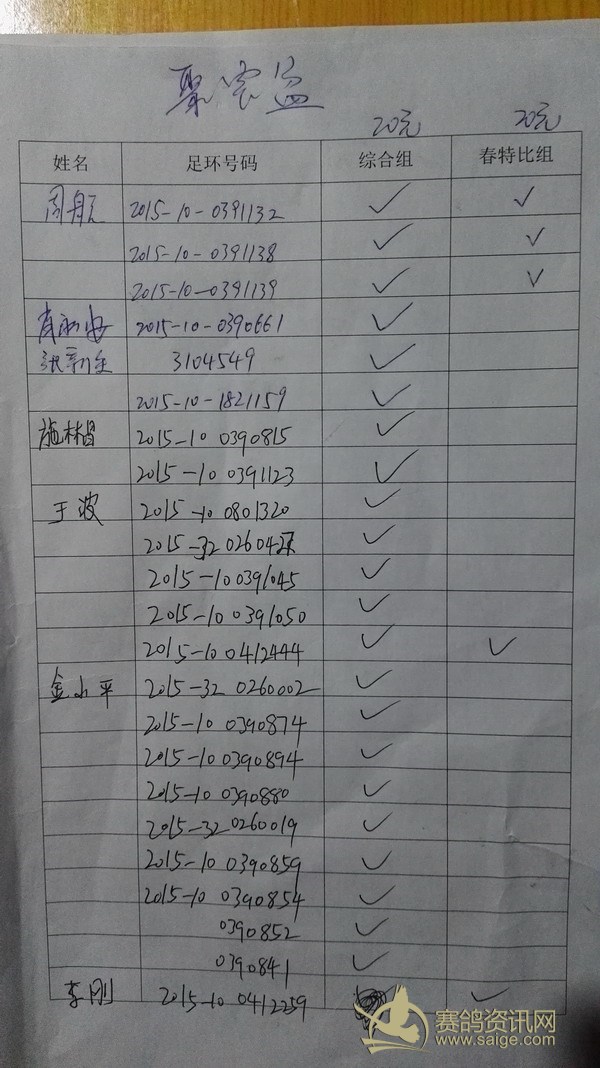 聚宝盆
20元 20元
姓名 足环号码 综合组 春特比组
周航 2015-10-0391132 ✓ ✓
2015-10-0391138 ✓ ✓
2015-10-0391139 ✓ ✓
2015-10-0390661 ✓
张新全 3104549 ✓
2015-10-1821159 ✓
施林昌 2015-10 0390815 ✓
2015-10 0391123 ✓
王波 2015-10 0801320 ✓
2015-32 026042 ✓
2015-10 0391045 ✓
2015-10 0391050 ✓
2015-10 0412444 ✓ ✓
金小平 2015-32 0260002 ✓
2015-10 0390874 ✓
2015-10 0390894 ✓
2015-10 0390880 ✓
2015-32 0260019 ✓
2015-10 0390859 ✓
2015-10 0390854 ✓
0390852 ✓
0390841 ✓
李刚 2015-10 0412259 ✓
赛鸽资讯网
www.saige.com